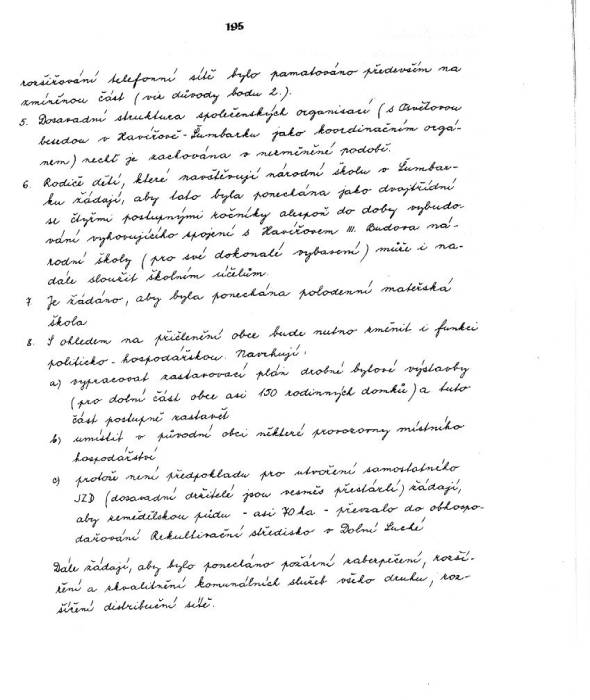 195
rozšiřování telefonní sítě bylo pamatováno především na
zmíněnou část (viz důvody bodu 2.).
5. Dosavadní struktura společenských organisací (s Osvětovou
besedou v Havířově-Šumbarku jako koordinačním orgá-
nem) nechť je zachována v nezměněné podobě.
6. Rodiče dětí, které navštěvují národní školu v Šumbar-
ku žádají, aby tato byla ponechána jako dvojtřídní
se čtyřmi postupnými ročníky alespoň do doby vybudo-
vání vyhovujícího spojení s Havířovem III. Budova ná-
rodní školy (pro své dokonalé vybavení) může i na-
dále sloužit školním účelům.
7 Je žádáno, aby byla ponechána polodenní mateřská
škola
8. S ohledem na přičlenění obce bude nutno změnit i funkci
politicko-hospodářskou. Navrhují:
a) vypracovat zastavovací plán drobné bytové výstavby
(pro dolní část obce asi 150 rodinných domků) a tuto
část postupně zastavět
b) umístit v původní obci některé provozovny místního
hospodářství
c) protože není předpokladu pro utvoření samostatného
JZD (dosavadní držitelé jsou vesměs přestárlí) žádají,
aby zemědělskou půdu - asi 70 ha - převzalo do obhospo-
dařování Rekultivační středisko v Dolní Suché
Dále žádají, aby bylo ponecháno požární zabezpečení, rozší-
ření a zkvalitnění komunálních služeb všeho druhu, roz-
šíření distribuční sítě.